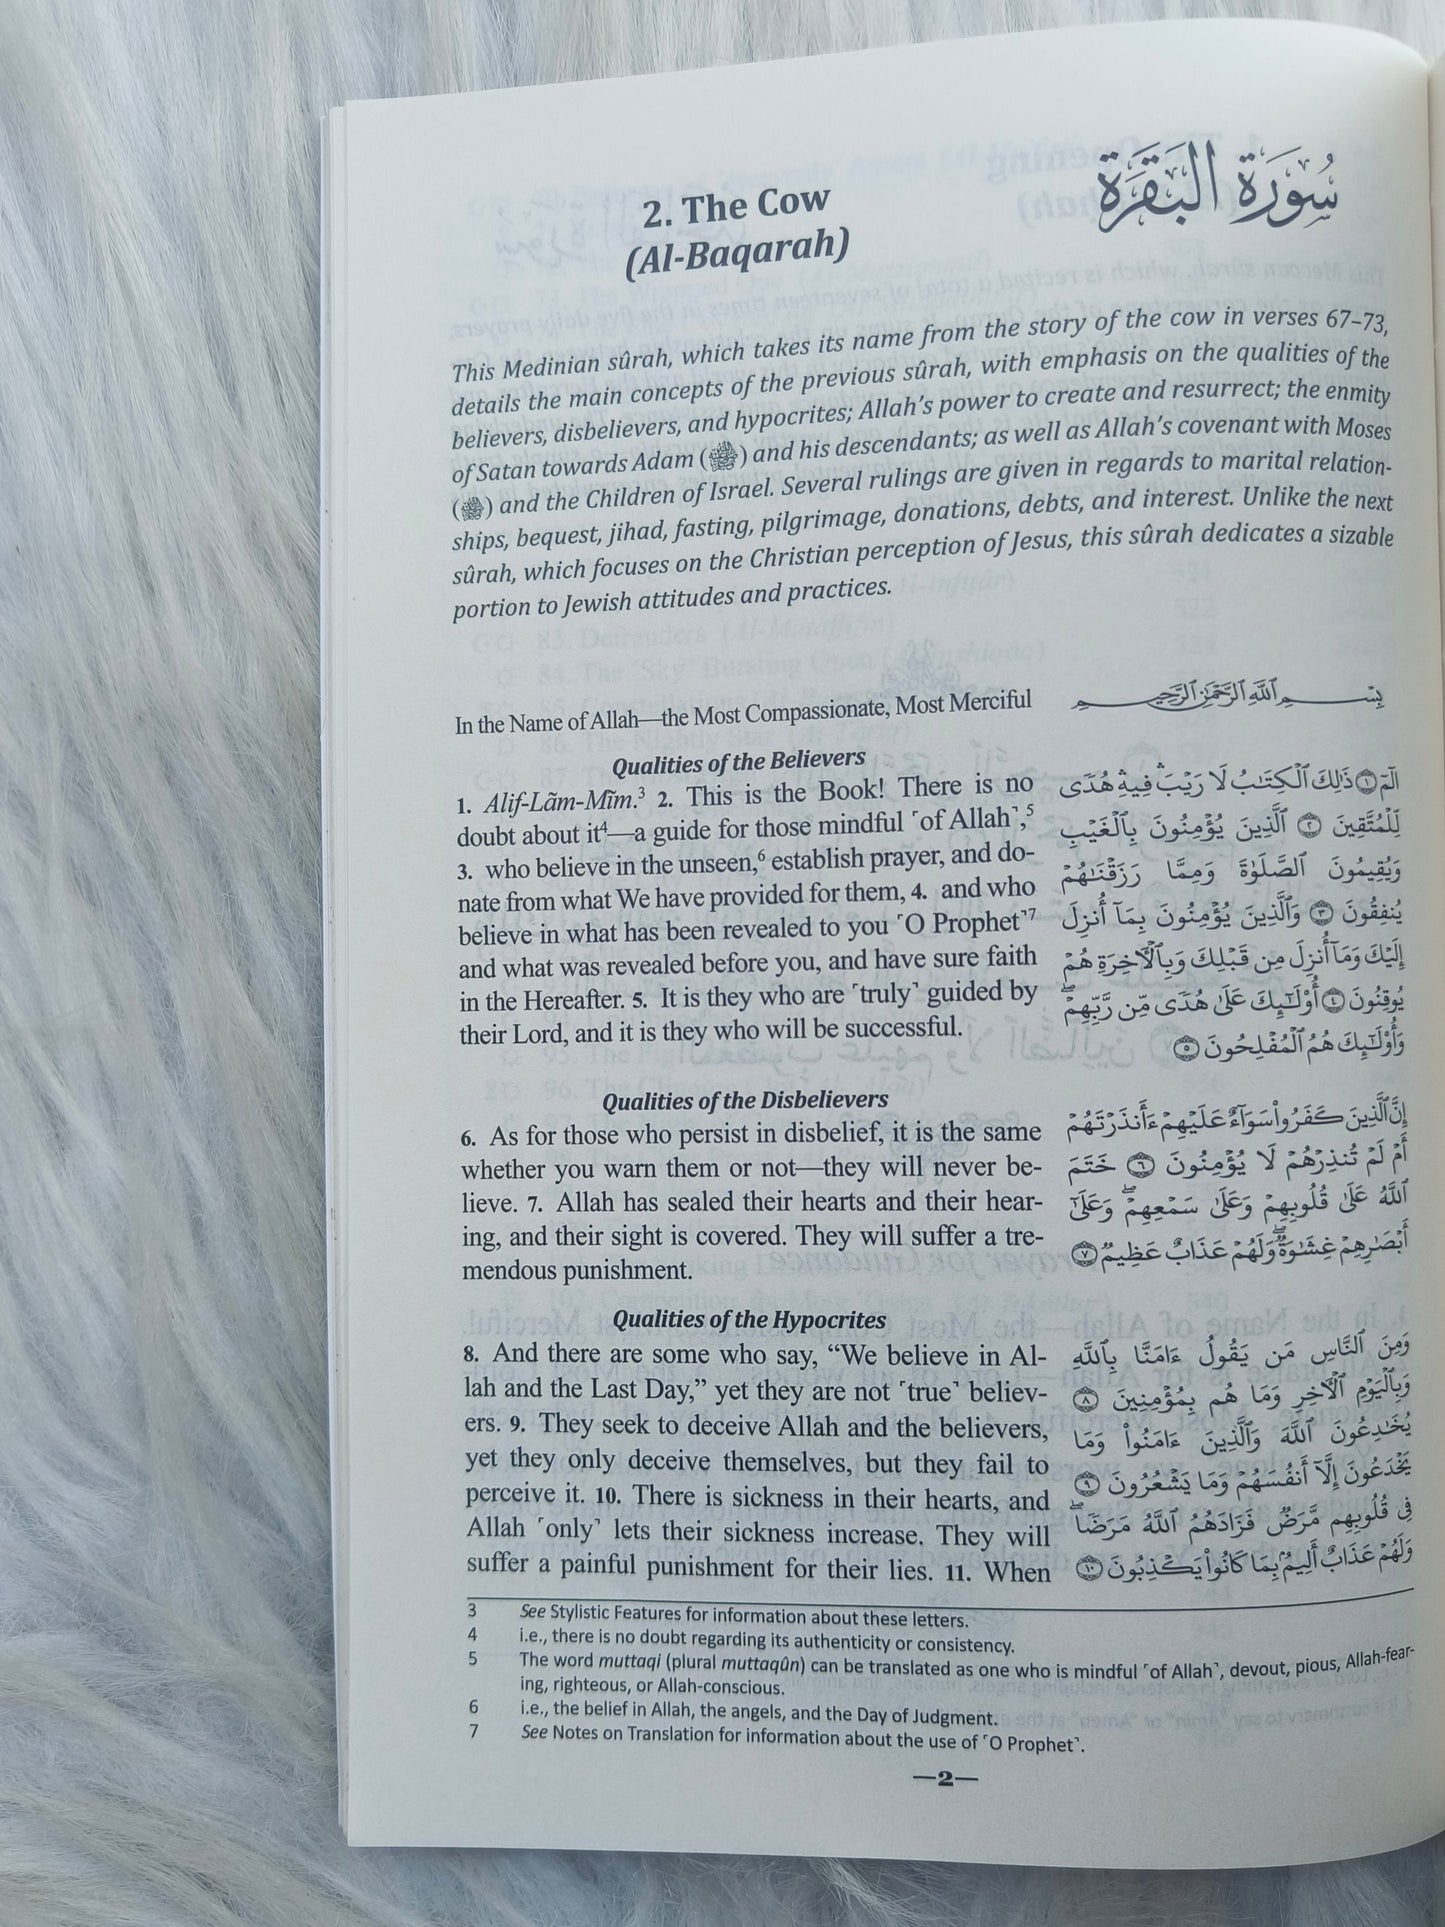 2. The Cow
(Al-Baqarah)
سُورَةُ البَقَرَةِ
This Medinian sûrah, which takes its name from the story of the cow in verses 67–73,
details the main concepts of the previous sûrah, with emphasis on the qualities of the
believers, disbelievers, and hypocrites; Allah’s power to create and resurrect; the enmity
of Satan towards Adam () and his descendants; as well as Allah’s covenant with Moses
() and the Children of Israel. Several rulings are given in regards to marital relation-
ships, bequest, jihad, fasting, pilgrimage, donations, debts, and interest. Unlike the next
sûrah, which focuses on the Christian perception of Jesus, this sûrah dedicates a sizable
portion to Jewish attitudes and practices.
In the Name of Allah—the Most Compassionate, Most Merciful
Qualities of the Believers
1. Alif-Lãm-Mĩm.³ 2. This is the Book! There is no
doubt about it⁴—a guide for those mindful ˹of Allah˺,⁵
3. who believe in the unseen,⁶ establish prayer, and do-
nate from what We have provided for them, 4. and who
believe in what has been revealed to you ˹O Prophet˺⁷
and what was revealed before you, and have sure faith
in the Hereafter. 5. It is they who are ˹truly˺ guided by
their Lord, and it is they who will be successful.
Qualities of the Disbelievers
6. As for those who persist in disbelief, it is the same
whether you warn them or not—they will never be-
lieve. 7. Allah has sealed their hearts and their hear-
ing, and their sight is covered. They will suffer a tre-
mendous punishment.
Qualities of the Hypocrites
8. And there are some who say, “We believe in Al-
lah and the Last Day,” yet they are not ˹true˺ believ-
ers. 9. They seek to deceive Allah and the believers,
yet they only deceive themselves, but they fail to
perceive it. 10. There is sickness in their hearts, and
Allah ˹only˺ lets their sickness increase. They will
suffer a painful punishment for their lies. 11. When
بِسْمِ ٱللَّهِ ٱلرَّحْمَٰنِ ٱلرَّحِيمِ
الٓمٓ ١ ذَٰلِكَ ٱلْكِتَٰبُ لَا رَيْبَ ۛ فِيهِ ۛ هُدًى
لِّلْمُتَّقِينَ ٢ ٱلَّذِينَ يُؤْمِنُونَ بِٱلْغَيْبِ
وَيُقِيمُونَ ٱلصَّلَوٰةَ وَمِمَّا رَزَقْنَٰهُمْ
يُنفِقُونَ ٣ وَٱلَّذِينَ يُؤْمِنُونَ بِمَآ أُنزِلَ
إِلَيْكَ وَمَآ أُنزِلَ مِن قَبْلِكَ وَبِٱلْـَٔاخِرَةِ هُمْ
يُوقِنُونَ ٤ أُو۟لَٰٓئِكَ عَلَىٰ هُدًى مِّن رَّبِّهِمْ ۖ
وَأُو۟لَٰٓئِكَ هُمُ ٱلْمُفْلِحُونَ ٥
إِنَّ ٱلَّذِينَ كَفَرُوا۟ سَوَآءٌ عَلَيْهِمْ ءَأَنذَرْتَهُمْ
أَمْ لَمْ تُنذِرْهُمْ لَا يُؤْمِنُونَ ٦ خَتَمَ
ٱللَّهُ عَلَىٰ قُلُوبِهِمْ وَعَلَىٰ سَمْعِهِمْ ۖ وَعَلَىٰٓ
أَبْصَٰرِهِمْ غِشَٰوَةٌ ۖ وَلَهُمْ عَذَابٌ عَظِيمٌ ٧
وَمِنَ ٱلنَّاسِ مَن يَقُولُ ءَامَنَّا بِٱللَّهِ
وَبِٱلْيَوْمِ ٱلْـَٔاخِرِ وَمَا هُم بِمُؤْمِنِينَ ٨
يُخَٰدِعُونَ ٱللَّهَ وَٱلَّذِينَ ءَامَنُوا۟ وَمَا
يَخْدَعُونَ إِلَّآ أَنفُسَهُمْ وَمَا يَشْعُرُونَ ٩
فِى قُلُوبِهِم مَّرَضٌ فَزَادَهُمُ ٱللَّهُ مَرَضًا ۖ
وَلَهُمْ عَذَابٌ أَلِيمٌۢ بِمَا كَانُوا۟ يَكْذِبُونَ ١٠
3 See Stylistic Features for information about these letters.
4 i.e., there is no doubt regarding its authenticity or consistency.
5 The word muttaqi (plural muttaqûn) can be translated as one who is mindful ˹of Allah˺, devout, pious, Allah-fear-
ing, righteous, or Allah-conscious.
6 i.e., the belief in Allah, the angels, and the Day of Judgment.
7 See Notes on Translation for information about the use of ˹O Prophet˺.
—2—